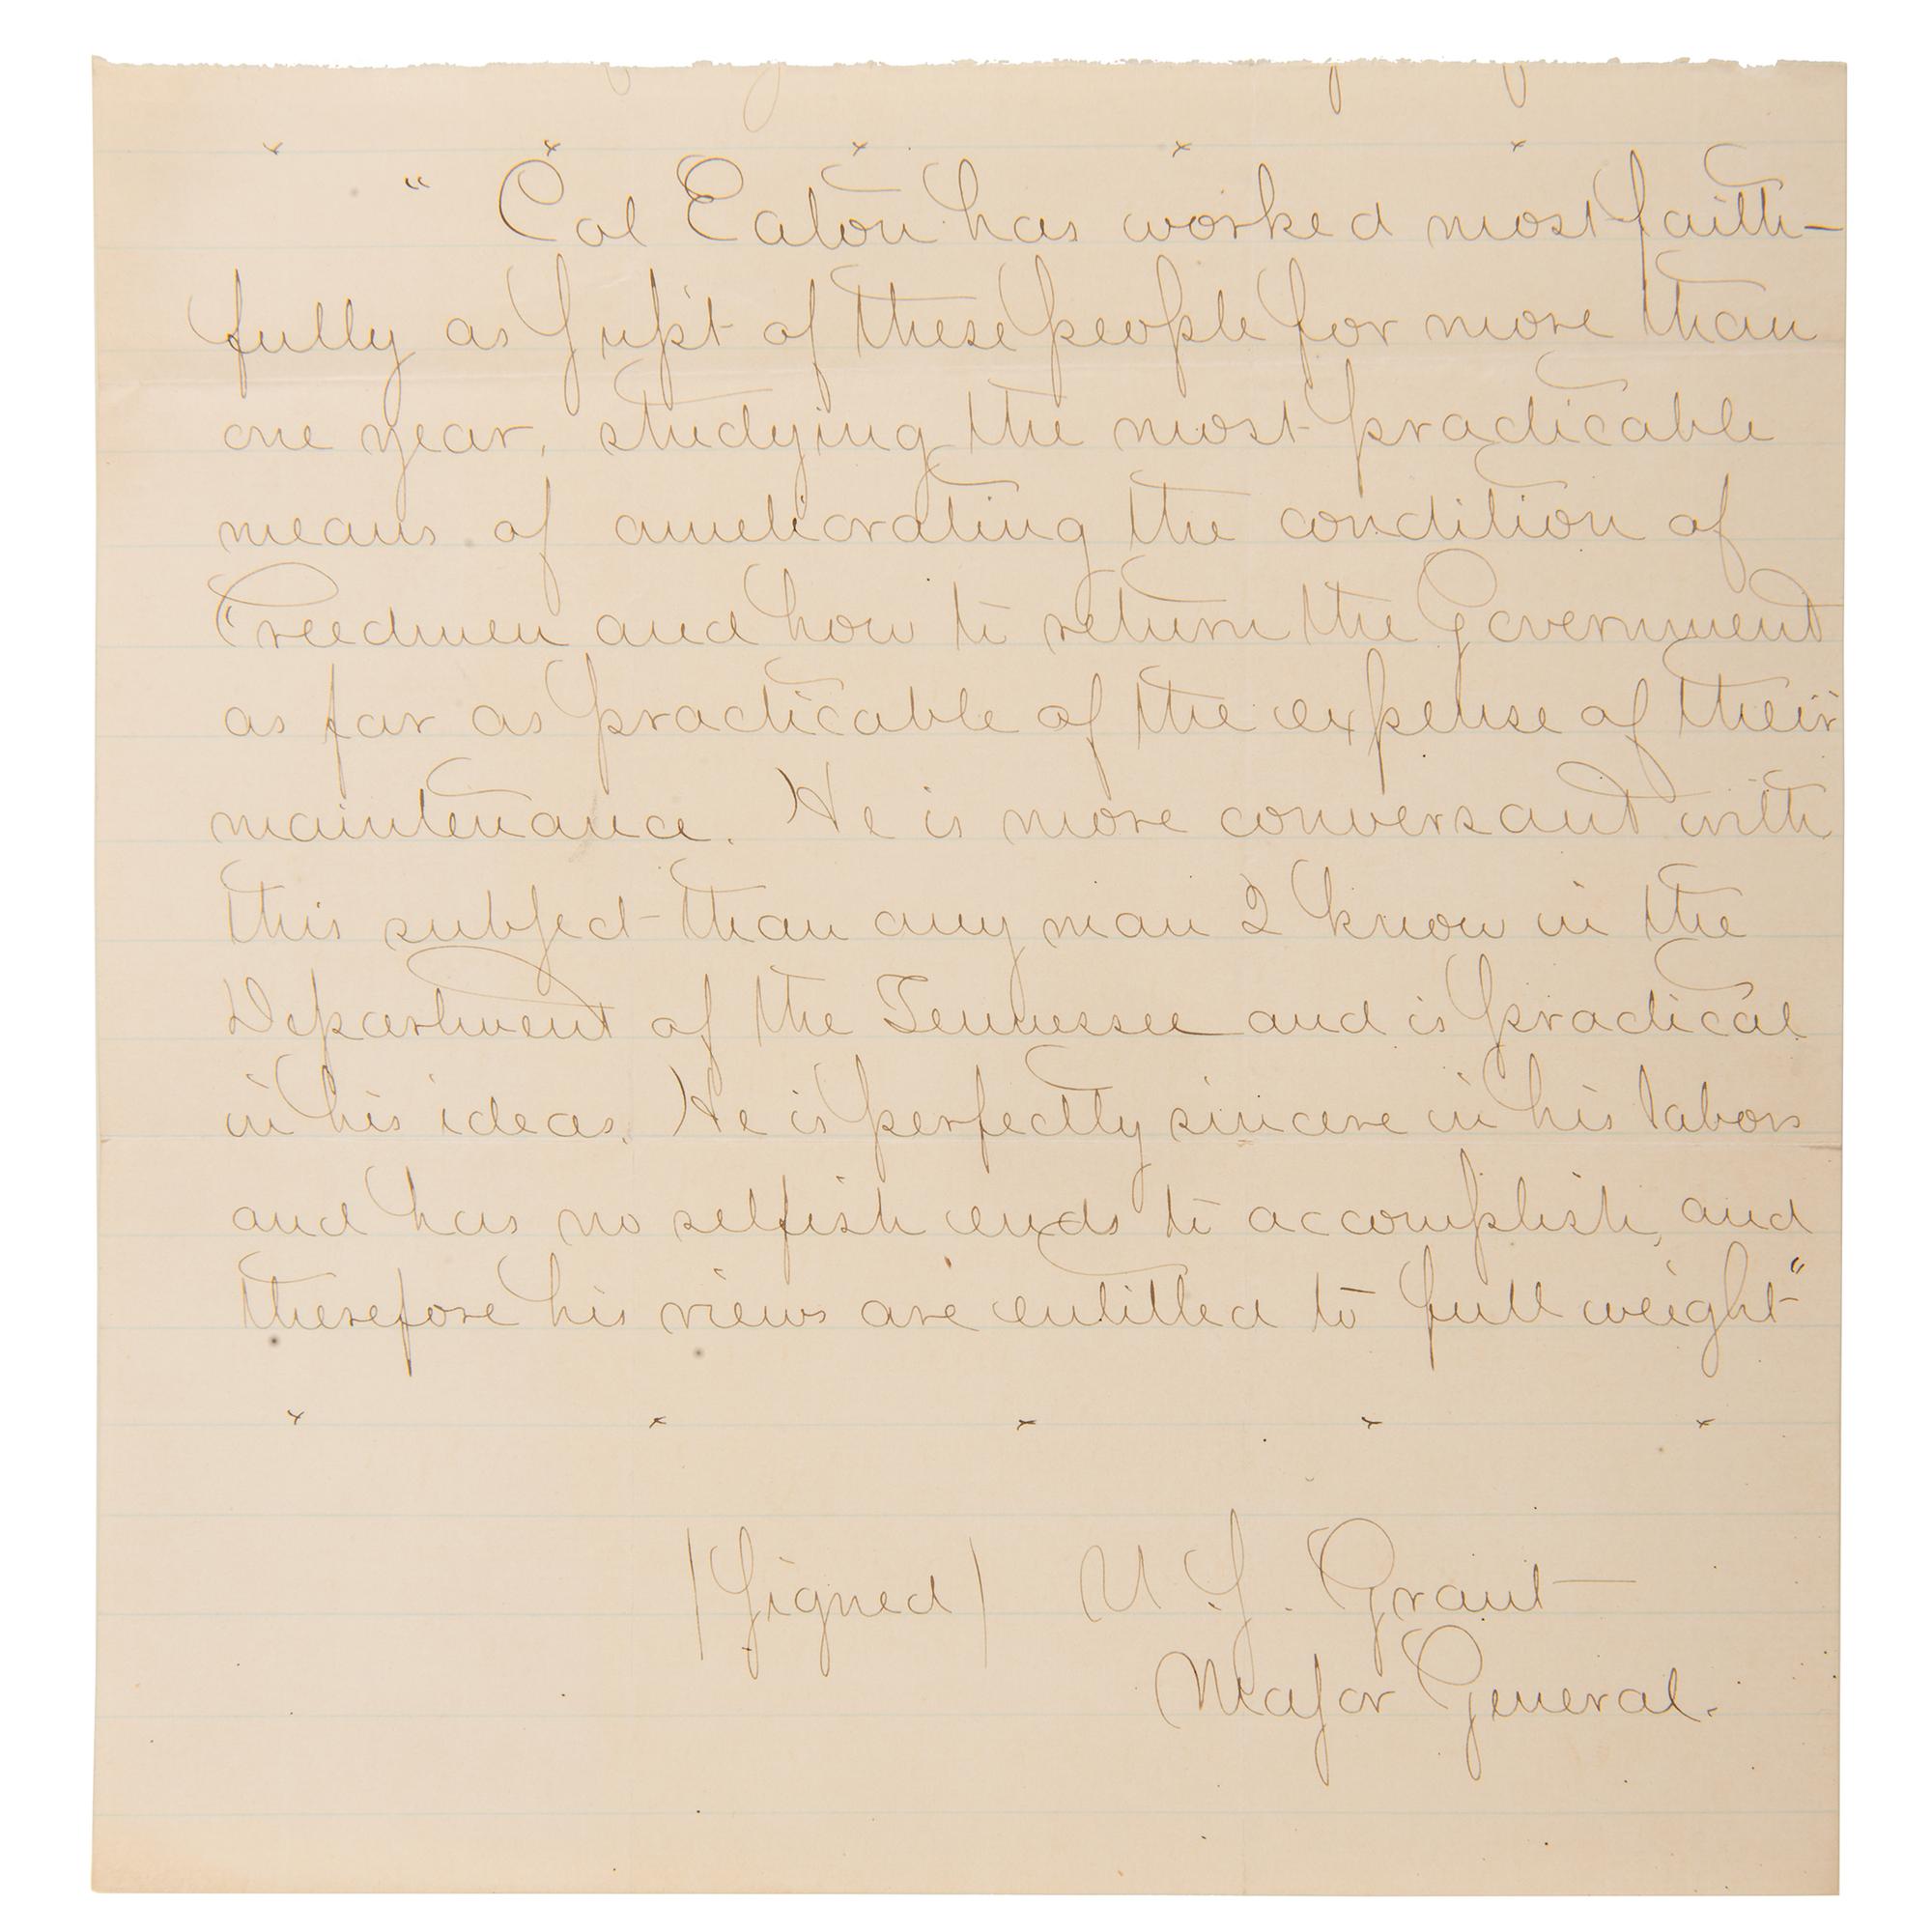 x x x x x
" Col Eaton has worked most faith-
fully as Supt of these people for more than
one year, studying the most practicable
means of ameliorating the condition of
Freedmen and how to return the Government
as far as practicable of the expense of their
maintenance. He is more conversant with
this subject than any man I know in the
Department of the Tennessee and is practical
in his ideas. He is perfectly sincere in his labors
and has no selfish ends to accomplish, and
therefore his views are entitled to full weight"
x x x x x
(Signed) U. S. Grant
Major General.